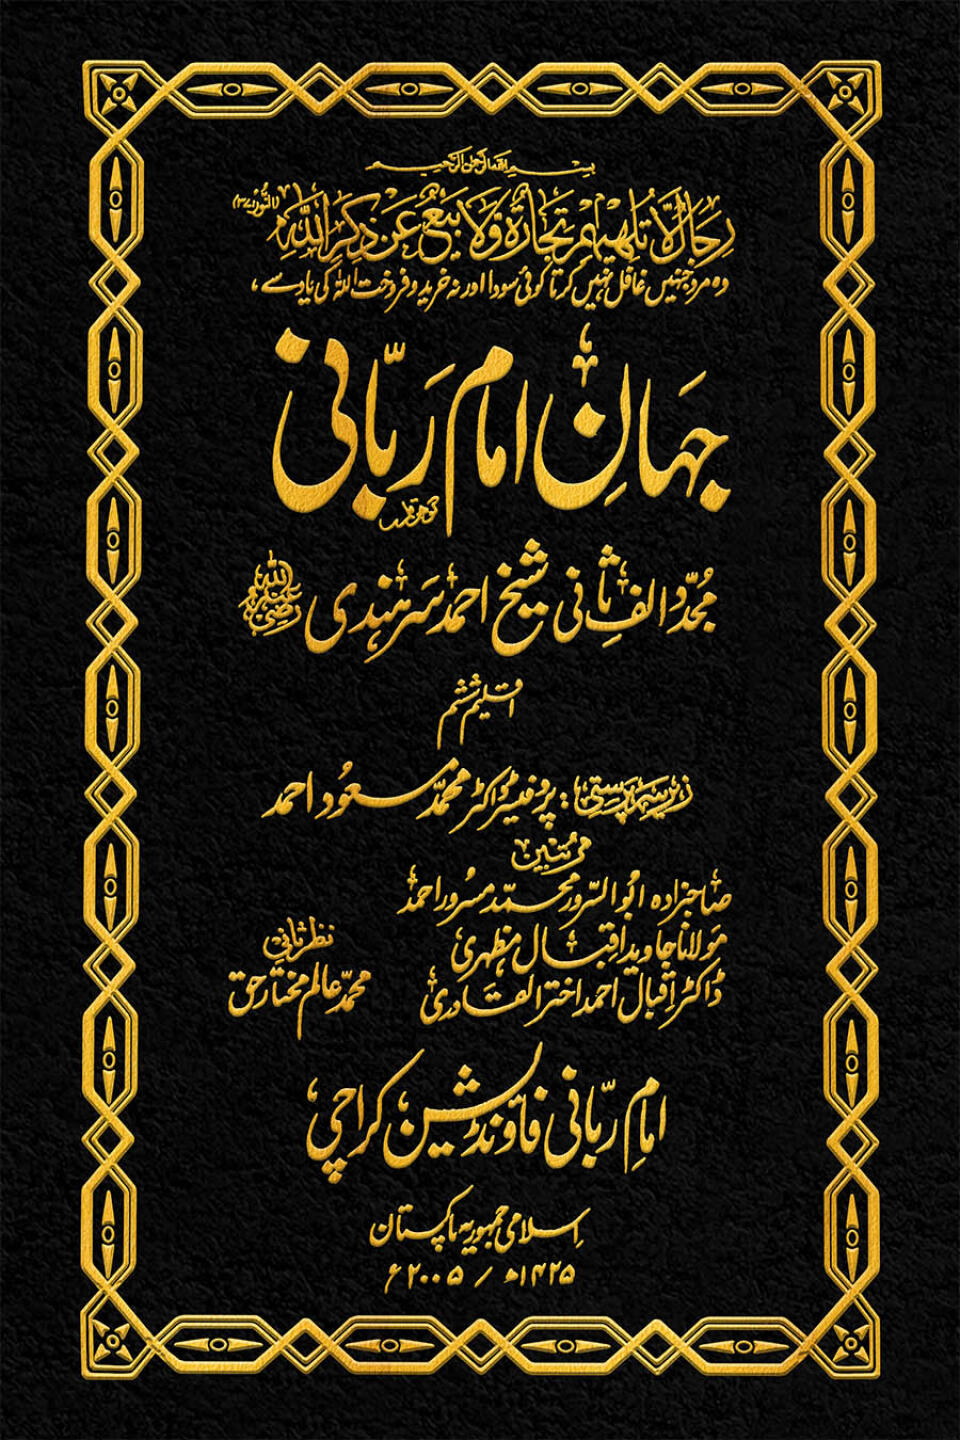 بسم الله الرحمن الرحيم
رِجَالٌ لَّا تُلْهِيهِمْ تِجَارَةٌ وَّلَا بَيْعٌ عَنْ ذِكْرِ اللّٰهِ (النور:۳۷)
وہ مرد جنہیں غافل نہیں کرتا کوئی سودا اور نہ خرید و فروخت اللہ کی یاد سے،
جہانِ امام ربّانی
مجدّد الفِ ثانی شیخ احمد سرہندی رضی اللہ عنہ
اقلیم ششم
زیر سرپرستی: پروفیسر ڈاکٹر محمّد مسعُود احمد
مرتبین
صاحبزادہ ابُو السّرور محمّد مسرُور احمد
مولانا جاوید اقبال مظہری
ڈاکٹر اقبال احمد اختر القادری
نظر ثانی
محمّد عالم مختارِ حق
امامِ ربّانی فاؤنڈیشن کراچی
اِسلامی جمہوریہ پاکستان
۱۴۲۵ھ / ۲۰۰۵ء